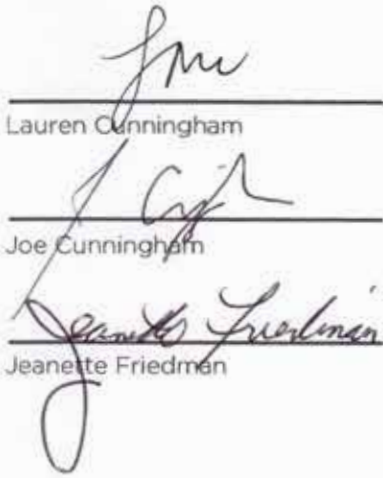 Lauren Cunningham
Joe Cunningham
Jeanette Friedman
Jeanette Friedman